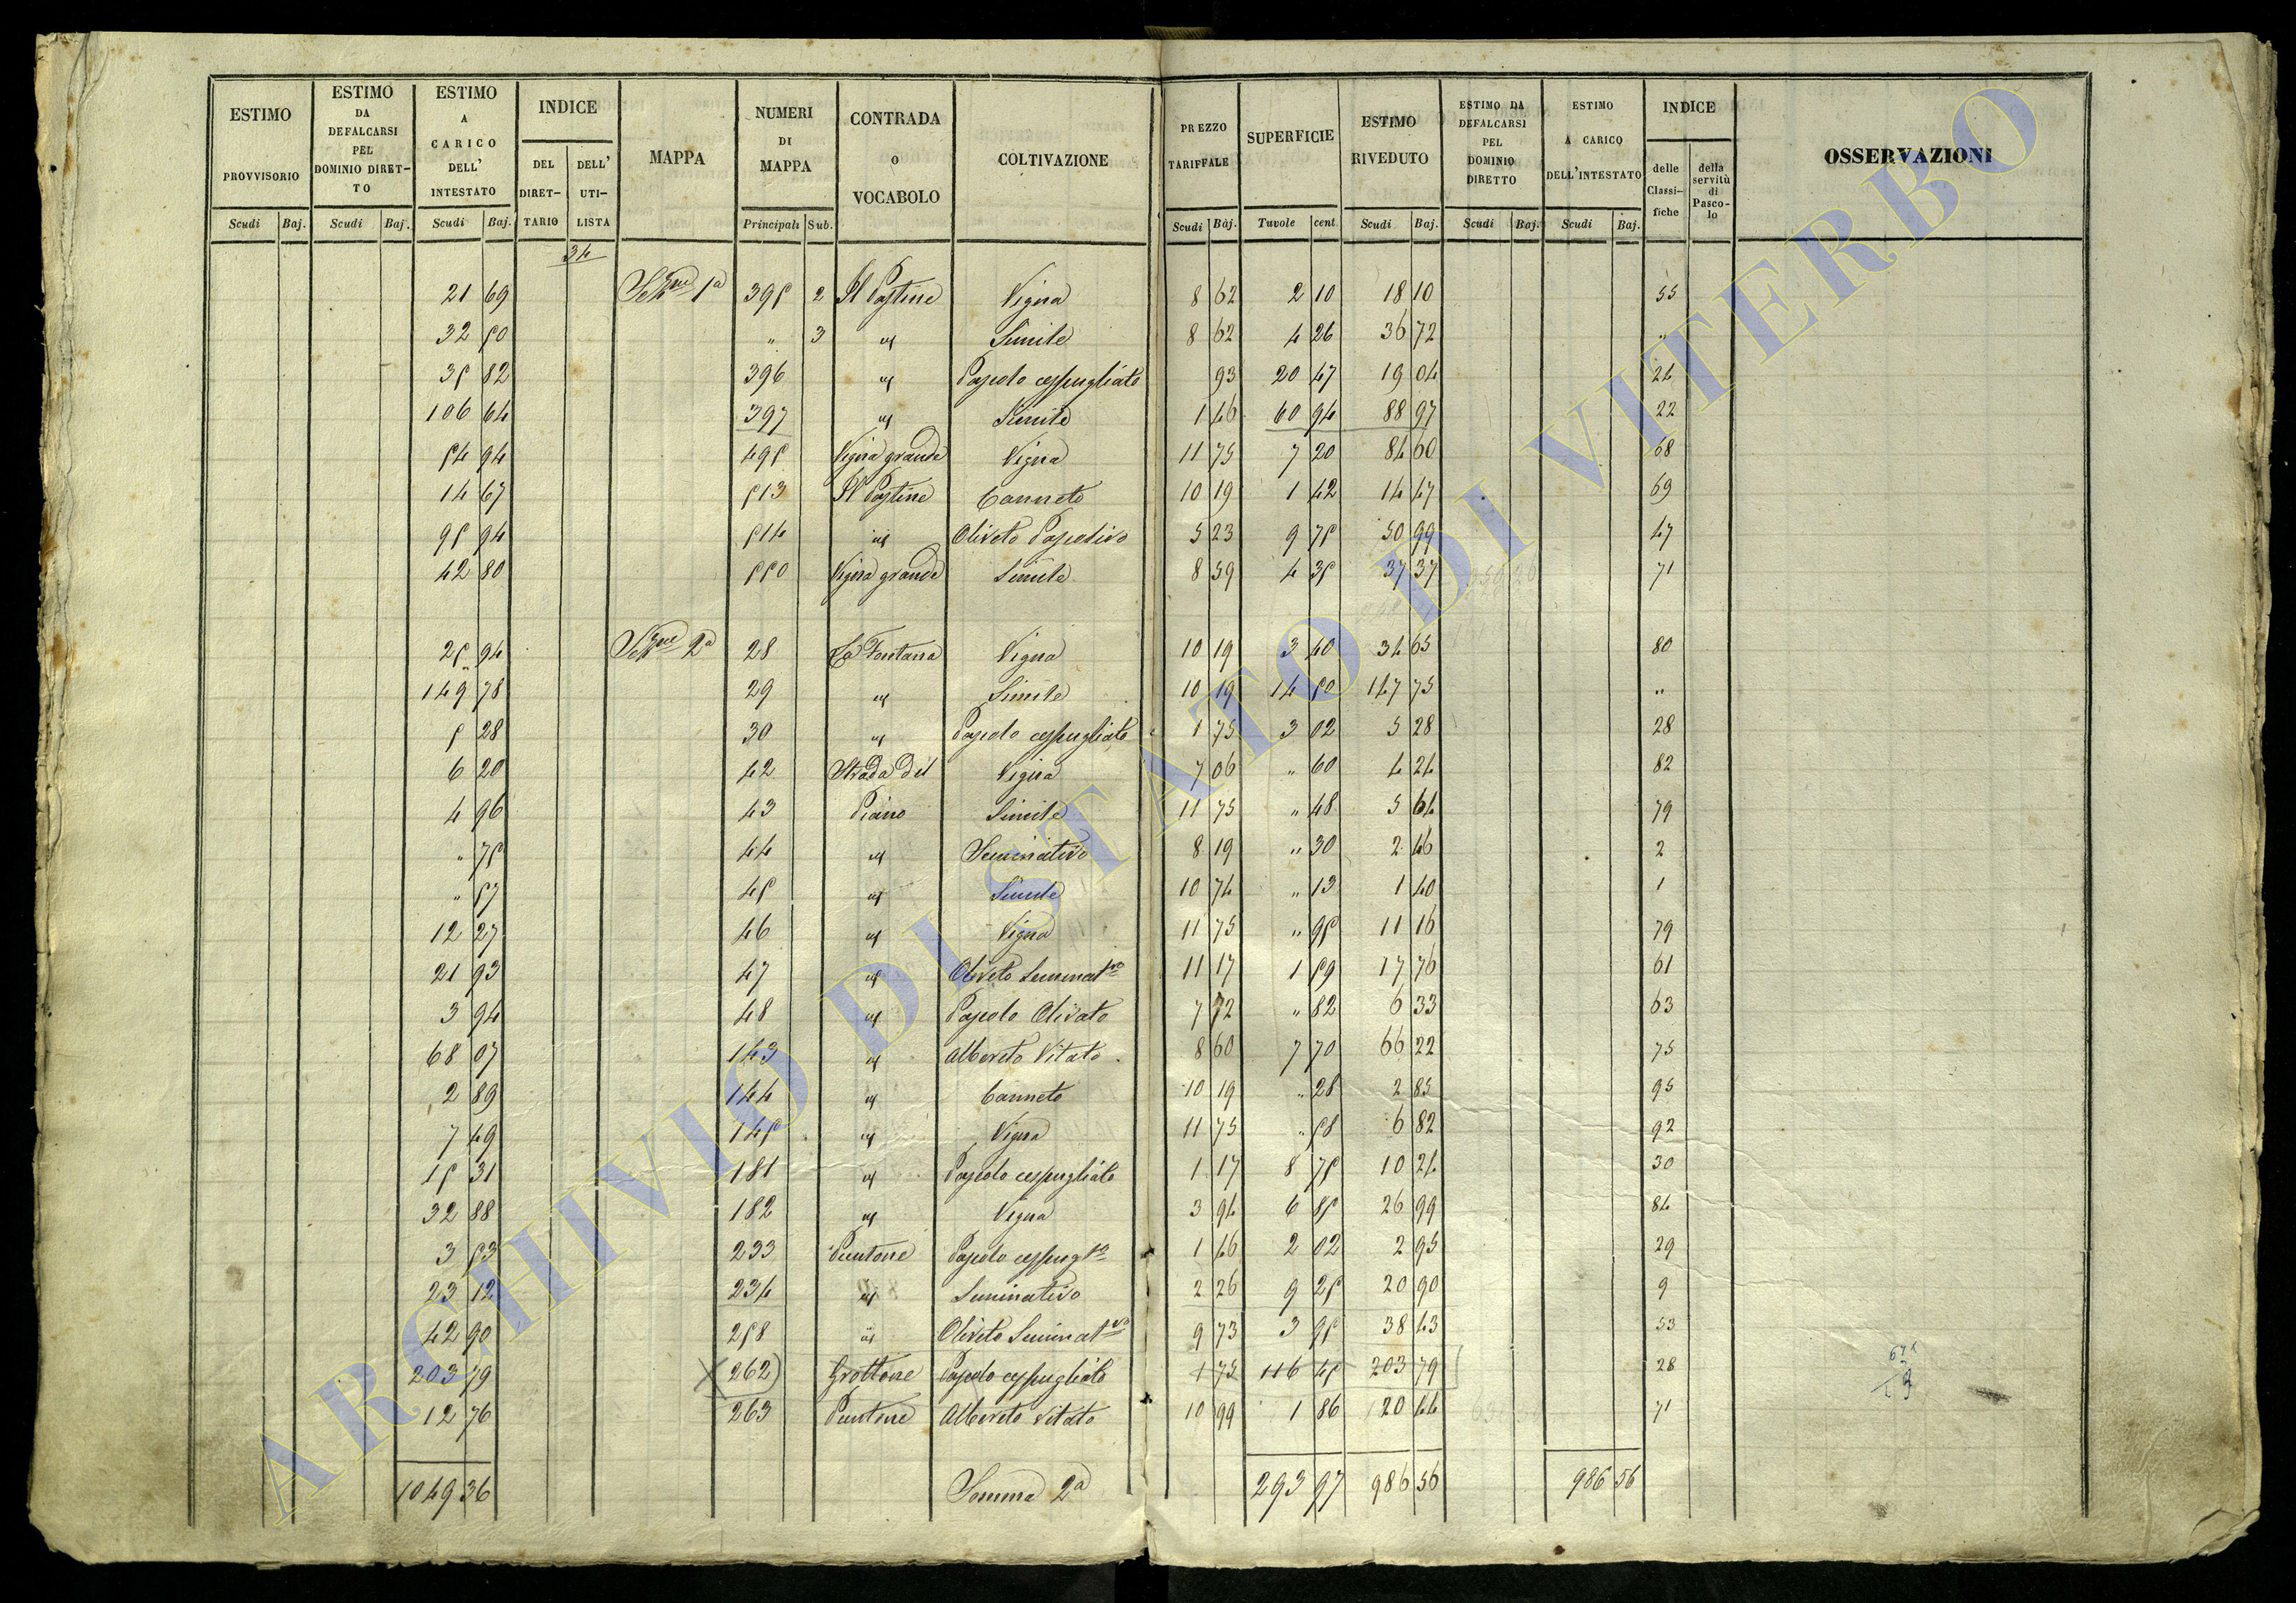 ESTIMO PROVVISORIO
ESTIMO DA DEFALCARSI PEL DOMINIO DIRET-TO
ESTIMO A CARICO DELL' INTESTATO
INDICE
DEL DIRET-TARIO
DELL' UTI-LISTA
MAPPA
NUMERI DI MAPPA
CONTRADA O VOCABOLO
COLTIVAZIONE
PREZZO TARIFFALE
SUPERFICIE
ESTIMO RIVEDUTO
ESTIMO DA DEFALCARSI PEL DOMINIO DIRETTO
ESTIMO A CARICO DELL'INTESTATO
INDICE
delle Classi-fiche
della servitù di Pasco-lo
OSSERVAZIONI
Scudi Baj. Scudi Baj. Scudi Baj. Principali Sub. Scudi Baj. Tavole cent Scudi Baj. Scudi Baj. Scudi Baj.
34
21 69 Sezne 1a 395 2 Il Pastine Vigna 8 62 2 10 18 10 55
32 50 " 3 " Simile 8 62 4 26 36 72 "
35 82 396 " Pascolo cespugliato 93 20 47 19 04 24
106 64 397 " Simile 1 46 60 94 88 97 22
54 94 495 Vigna grande Vigna 11 75 7 20 84 60 68
14 67 513 Il Pastine Canneto 10 19 1 42 14 47 69
95 94 514 " Oliveto Pascolivo 5 23 9 75 50 99 47
42 80 550 Vigna grande Simile 8 59 4 35 37 37 71
25 94 Sezne 2a 28 La Fontana Vigna 10 19 3 40 34 65 80
149 78 29 " Simile 10 19 14 50 147 75 "
5 28 30 " Pascolo cespugliato 1 75 3 02 5 28 28
6 20 42 Strada del Vigna 7 06 " 60 4 24 82
4 96 43 Piano Simile 11 75 " 48 5 64 79
" 75 44 " Seminativo 8 19 " 30 2 46 2
" 57 45 " Simile 10 74 " 13 1 40 1
12 27 46 " Vigna 11 75 " 95 11 16 79
21 93 47 " Oliveto Seminatvo 11 17 1 59 17 76 61
3 94 48 " Pascolo Olivato 7 72 " 82 6 33 63
68 07 143 " Alboreto Vitato 8 60 7 70 66 22 75
2 89 144 " Canneto 10 19 " 28 2 85 95
7 49 145 " Vigna 11 75 " 58 6 82 92
15 31 181 " Pascolo cespugliato 1 17 8 75 10 24 30
32 88 182 " Vigna 3 94 6 85 26 99 84
3 53 233 Puntone Pascolo cespugto 1 46 2 02 2 95 29
23 12 234 " Seminativo 2 26 9 25 20 90 9
42 90 258 " Oliveto Seminatvo 9 73 3 95 38 43 53
203 79 262 Grottone Pascolo cespugliato 1 75 116 45 203 79 28
12 76 263 Puntone Alboreto Vitato 10 99 1 86 20 44 71
1049 36 Somma 2a 293 97 986 56 986 56
ARCHIVIO DI STATO DI VITERBO